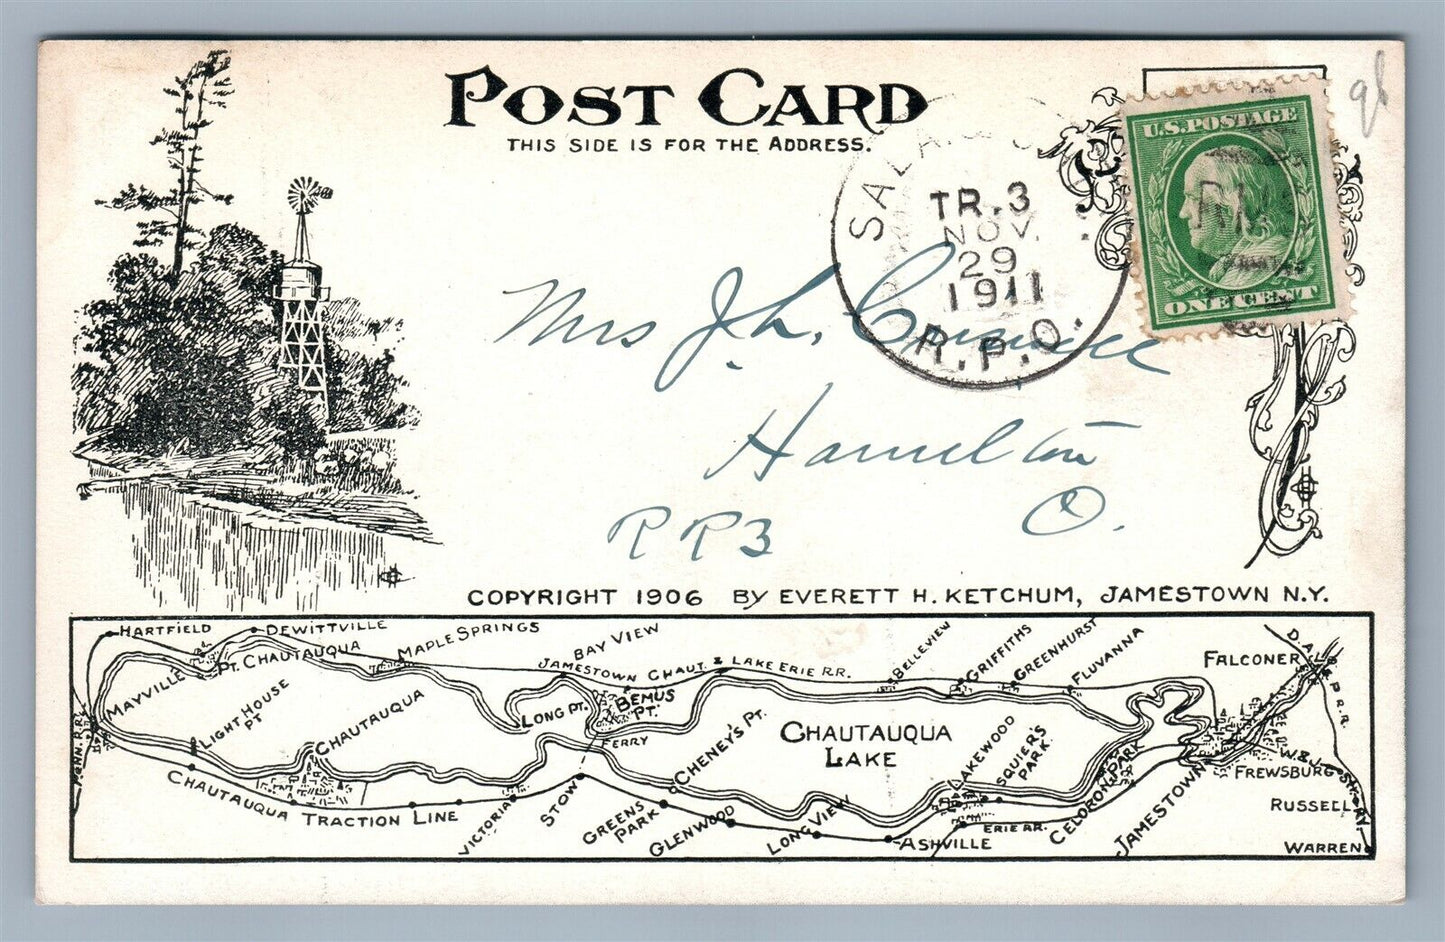 POST CARD
THIS SIDE IS FOR THE ADDRESS.
SALA.
TR.3
NOV.
29
1911
R.P.O.
U.S. POSTAGE
RMS
ONE CENT
96
Mrs J. L.
Hamilton
RR3 O.
COPYRIGHT 1906 BY EVERETT H. KETCHUM, JAMESTOWN N.Y.
HARTFIELD
DEWITTVILLE
MAPLE SPRINGS
BAY VIEW
PT. CHAUTAUQUA
JAMESTOWN CHAUT. & LAKE ERIE R.R.
BELLEVIEW
GRIFFITHS
GREENHURST
FLUVANNA
FALCONER
D.A.V.& P.R.R.
MAYVILLE
LIGHT HOUSE PT
CHAUTAUQUA
LONG PT.
BEMUS PT.
FERRY
CHENEY'S PT.
CHAUTAUQUA
LAKE
LAKEWOOD
SQUIER'S PARK
CELORON PARK
JAMESTOWN
W. & J. ST. RY
FREWSBURG
RUSSELL
WARREN
PENN. R.R.
CHAUTAUQUA TRACTION LINE
VICTORIA
STOW
GREENS PARK
GLENWOOD
LONG VIEW
ASHVILLE
ERIE RR.